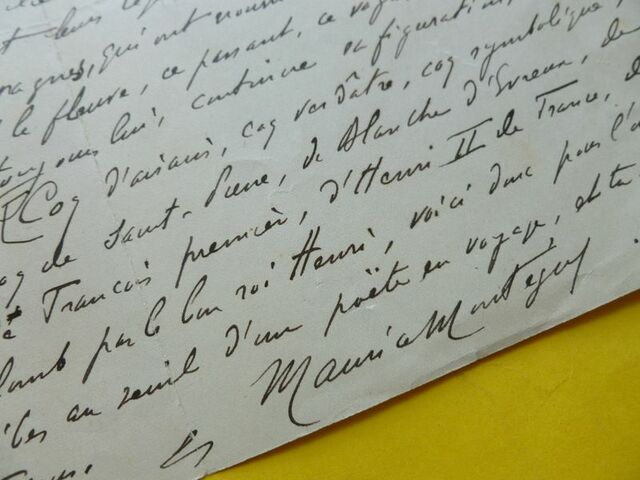 t leurs
magnes, qui ont nourri
le fleuve, ce passant, ce
toujours lui, continue sa figuration,
Coq d'airain, coq verdâtre, coq symbolique,
coq de Saint-Pierre, de Blanche d'Evreux, de
François premier, d'Henri II de France, d
par le bon roi Henri, voici donc pour l'a
au seuil d'un poëte en voyage, et ta
Maurice Montégut